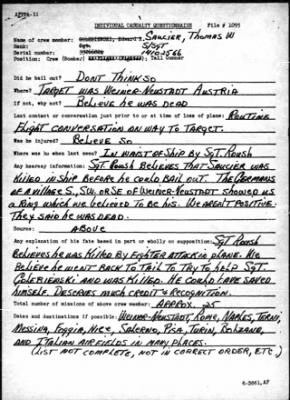 AFPPA-11
INDIVIDUAL CASUALTY QUESTIONNAIRE File # 1095
Name of crew member: Edward T. SAUCIER, THOMAS W
Rank: Sgt. S/SGT
Serial number: 14102566
Position: Crew (Bomber) Tail Gunner
Did he bail out? DONT THINK SO
Where? TARGET WAS WEINER-NEUSTADT AUSTRIA
If not, why not? BELIEVE HE WAS DEAD
Last contact or conversation just prior to or at time of loss: ROUTINE
FLIGHT CONVERSATION ON WAY TO TARGET.
Was he injured? BELIEVE SO
Where was he when last seen? IN WAIST OF SHIP BY SGT. ROUSH
Any hearsay information: SGT. ROUSH BELIEVES THAT SAUCIER WAS
KILLED IN SHIP BEFORE HE COULD BAIL OUT. THE GERMANS
OF A VILLAGE S., SW. OR SE OF WEINER-NEUSTADT SHOWED US
A RING WHICH WE BELIEVED TO BE HIS. WE AREN'T POSITIVE.
THEY SAID HE WAS DEAD.
Source: ABOVE
Any explanation of his fate based in part or wholly on supposition: SGT ROUSH
BELIEVES HE WAS KILLED BY FIGHTER ATTACK IN PLANE. WE
BELIEVE HE WENT BACK TO TAIL TO TRY TO HELP SGT.
GOLEBIEWSKI AND WAS KILLED. HE COULD HAVE SAVED
HIMSELF. DESERVES MUCH CREDIT & RECOGNITION.
Total number of missions of above crew member: APPROX. 25
Dates and destinations if possible: WEINER-NEUSTADT, ROME, NAPLES, TERNI,
MESSINA, FOGGIA, NICE, SALERNO, PISA, TURIN, BOLZANO,
AND ITALIAN AIRFIELDS IN MANY PLACES.
(LIST NOT COMPLETE, NOT IN CORRECT ORDER, ETC.)
6-3861,AF